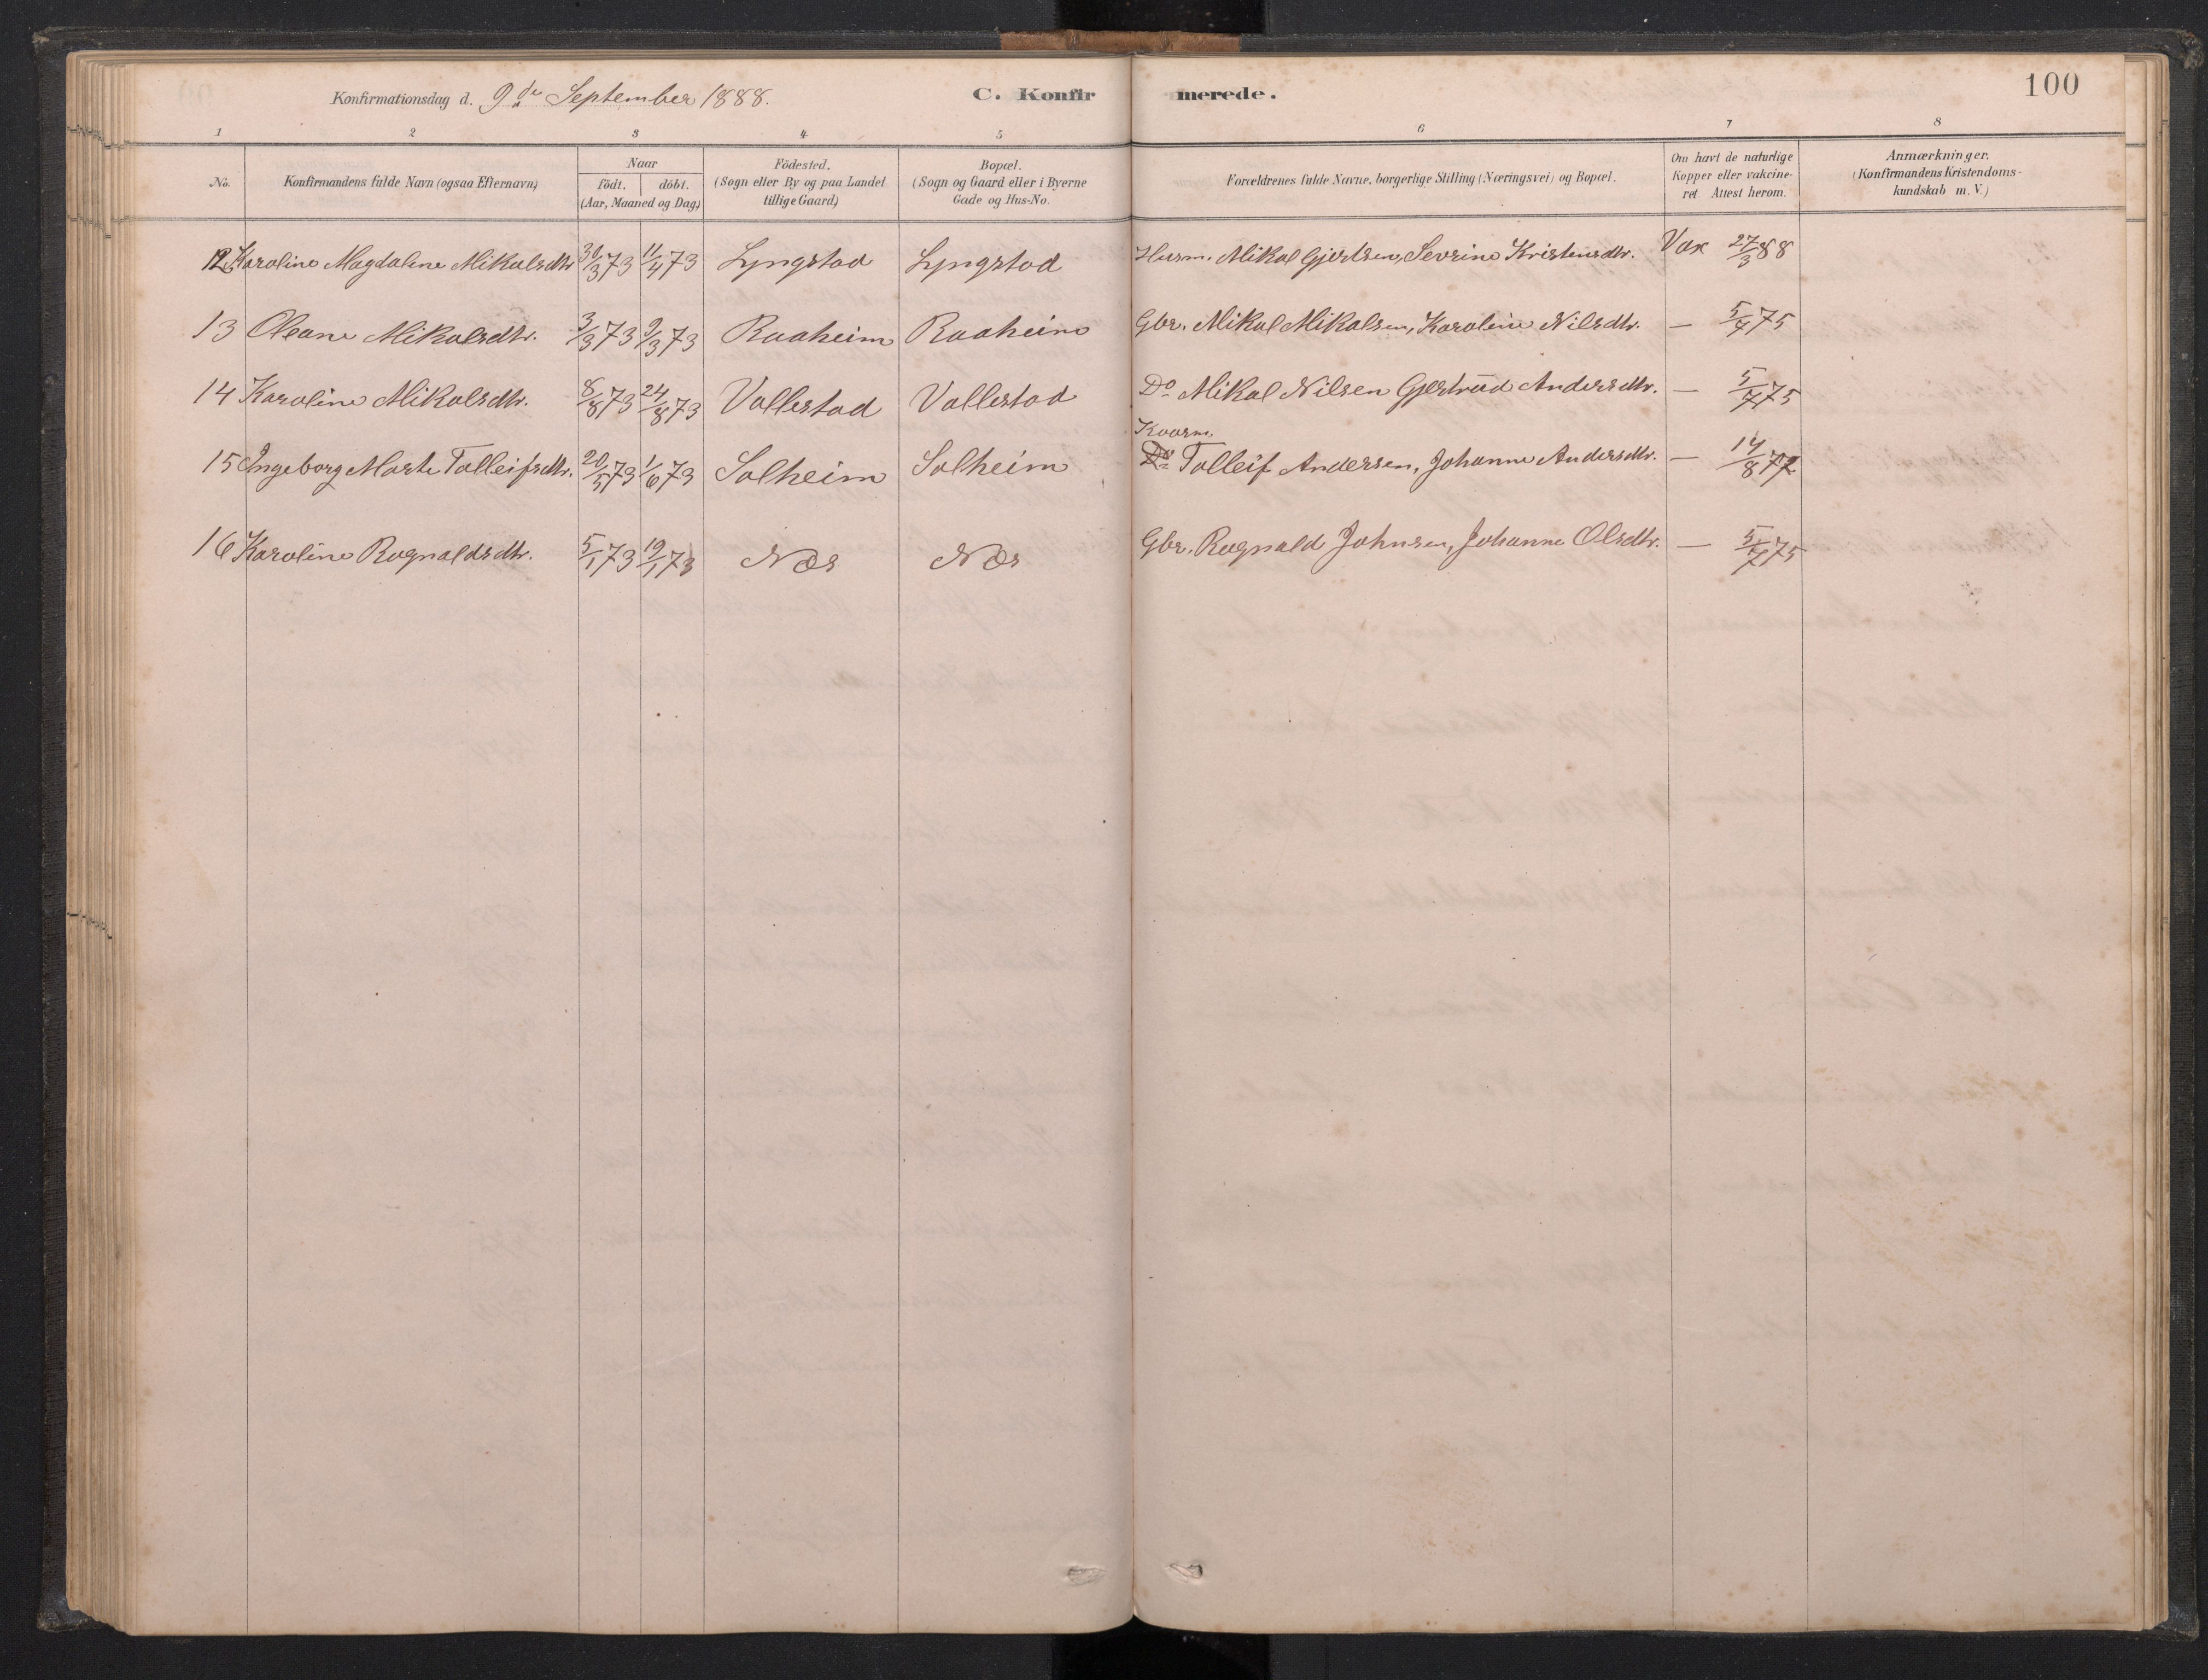 Konfirmationsdag d. 9de September 1888. C. Konfirmerede. 100
1 2 3 4 5 6 7 8
No. Konfirmandens fulde Navn (ogsaa Efternavn) Naar födt. döbt. (Aar, Maaned og Dag) Födested. (Sogn eller By og paa Landet tillige Gaard) Bopæl. (Sogn og Gaard eller i Byerne Gade og Hus-No. Forældrenes fulde Navne, borgerlige Stilling (Næringsvei) og Bopæl. Om havt de naturlige Kopper eller vakcineret Attest herom. Anmærkninger. (Konfirmandens Kristendomskundskab m. V.)
12 Karoline Magdalene Mikalsdtr. 30/3 73 11/4 73 Lyngstad Lyngstad Husm. Mikal Gjertsen, Sevrine Kristensdtr. Vax 27/3 88
13 Oleane Mikalsdtr. 3/3 73 9/3 73 Raaheim Raaheim Gbr. Mikal Mikalsen, Karoline Nilsdtr. — 5/7 75
14 Karoline Mikalsdtr. 8/8 73 24/8 73 Vallestad Vallestad Do Mikal Nilsen Gjertrüd Andersdtr. — 5/7 75
Kaarm.
15 Ingeborg Marte Tolleifsdtr. 20/5 73 1/6 73 Solheim Solheim Do Tolleif Andersen, Johanne Andersdtr. — 14/8 77
16 Karoline Ragnaldsdtr. 5/1 73 19/1 73 Nær Nær Gbr. Ragnald Johnsen, Johanne Olsdtr. — 5/7 75